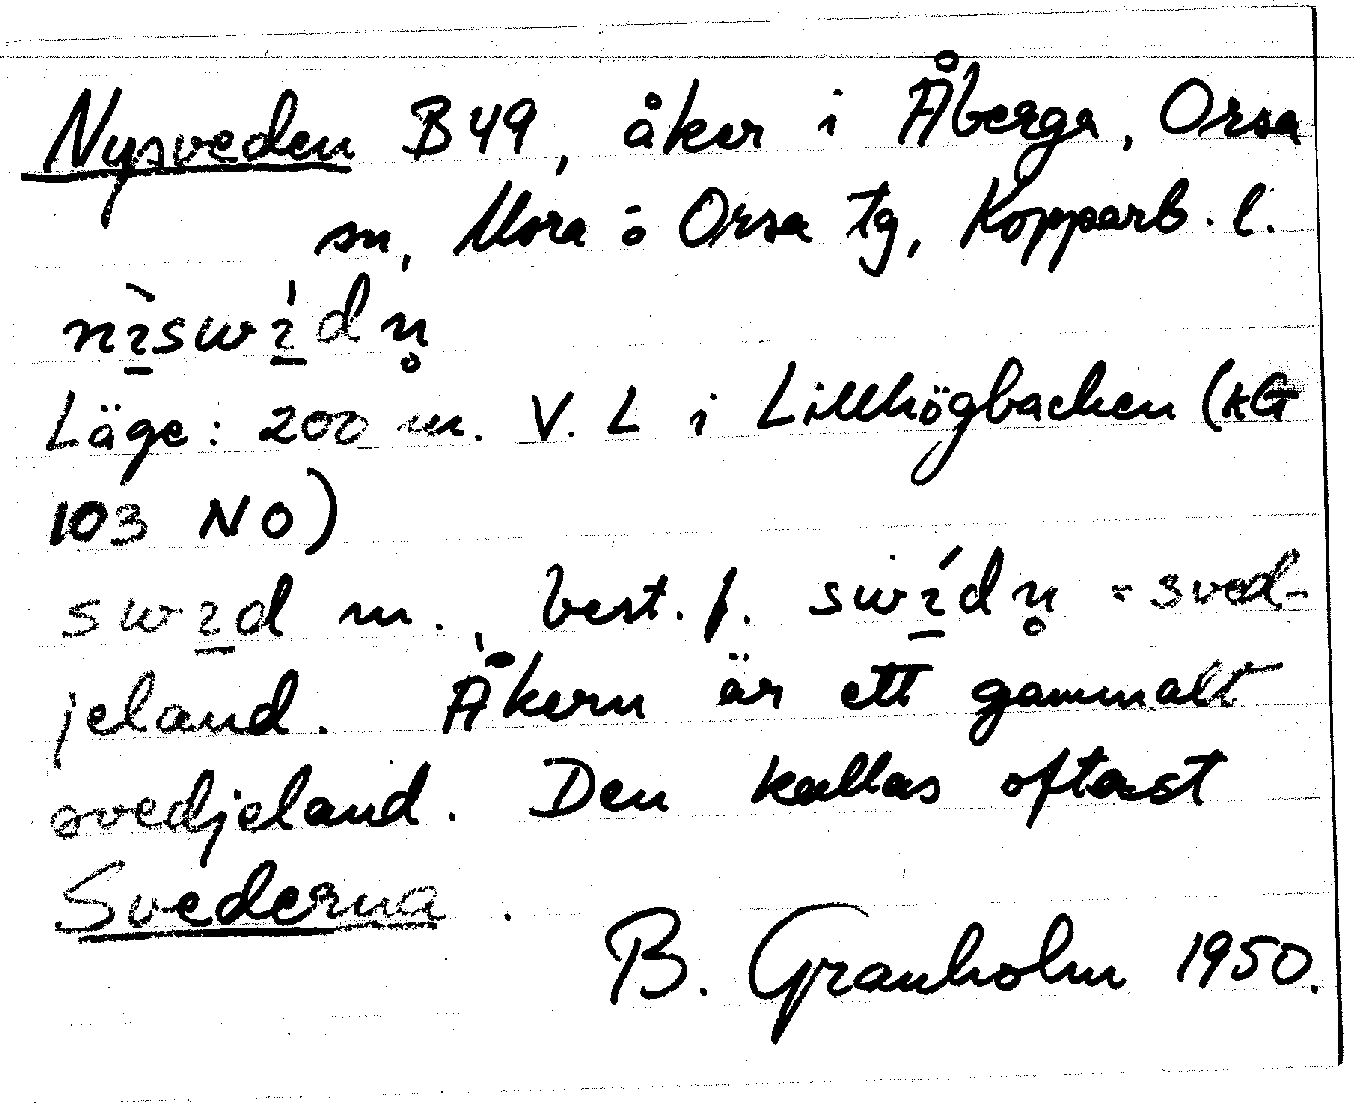 Nysveden B49, åker i Åberga, Orsa
sn, Mora o Orsa tg, Kopparb. l.
nìswı̱́dn̥
Läge: 200 m. V. L i Lillhögbacken (kG
103 NO)
swı̱d m., best. f. swı̱́dn̥ = sved-
jeland. Åkern är ett gammalt
svedjeland. Den kallas oftast
Svederna.
B. Granholm 1950.